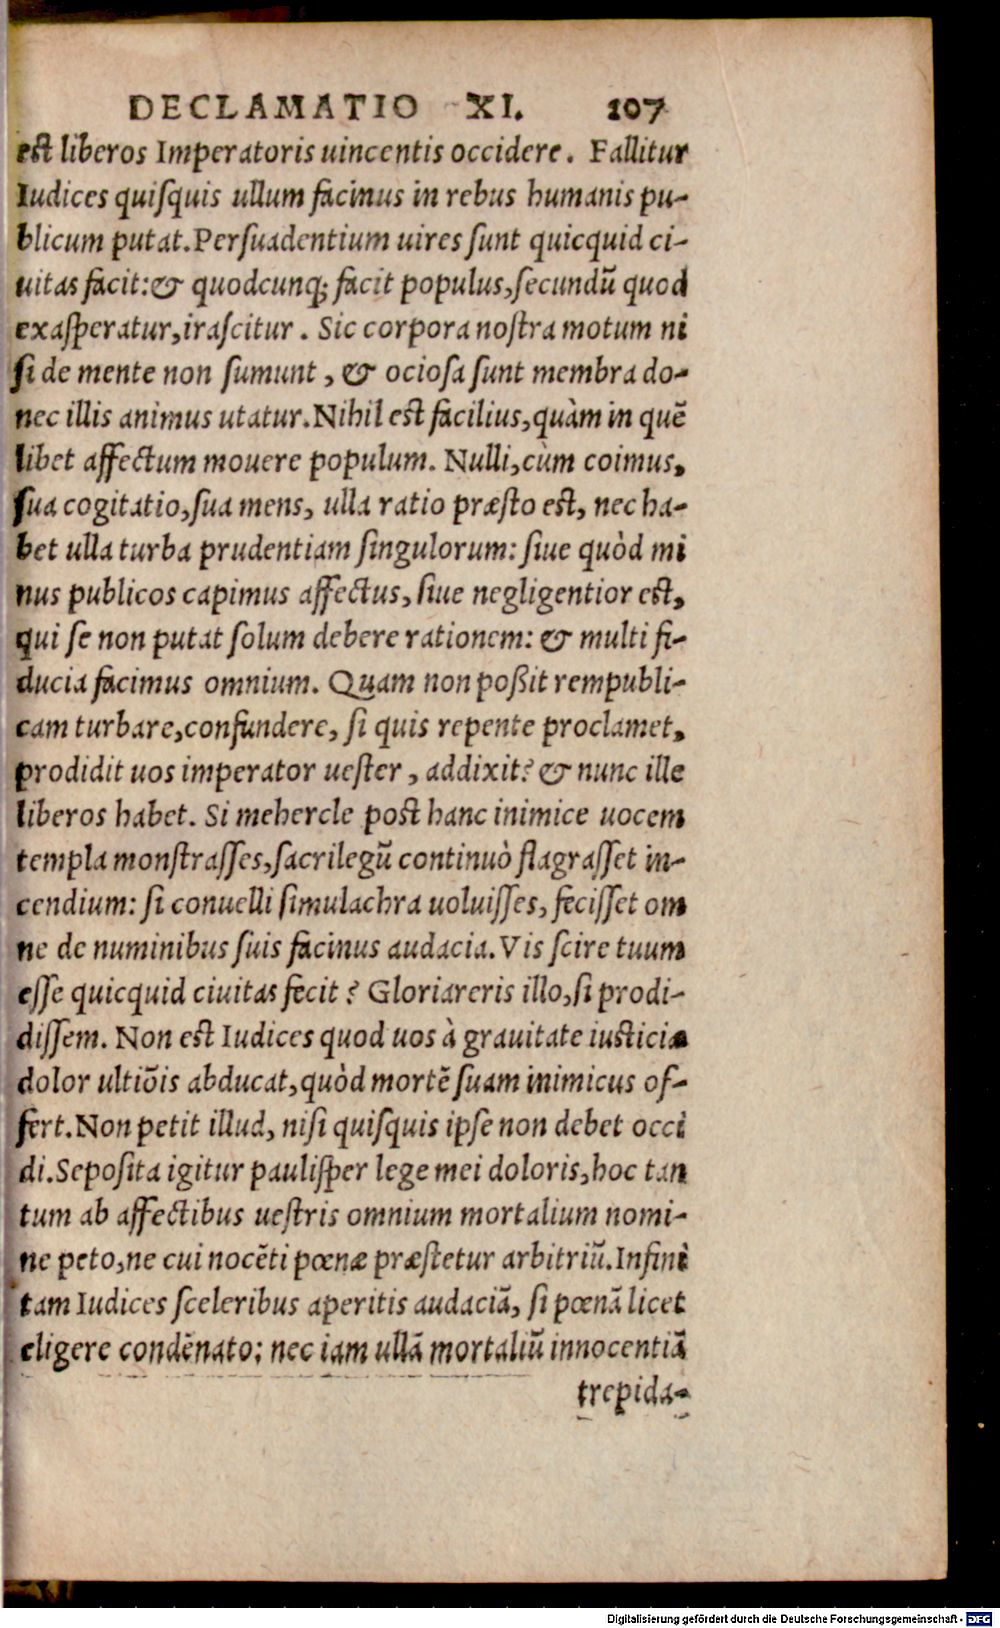 DECLAMATIO XI. 107
est liberos Imperatoris uincentis occidere. Fallitur
Iudices quiſquis ullum facinus in rebus humanis pu-
blicum putat. Perſuadentium uires ſunt quicquid ci-
uitas facit: & quodcunq; facit populus, ſecundũ quod
exaſperatur, iraſcitur. Sic corpora noſtra motum ni
ſi de mente non ſumunt, & ocioſa ſunt membra do-
nec illis animus utatur. Nihil est facilius, quàm in quẽ
libet affectum mouere populum. Nulli, cùm coimus,
ſua cogitatio, ſua mens, ulla ratio præſto est, nec ha-
bet ulla turba prudentiam ſingulorum: ſiue quòd mi
nus publicos capimus affectus, ſiue negligentior est,
qui ſe non putat ſolum debere rationem: & multi fi-
ducia facimus omnium. Quam non poßit rempubli-
cam turbare, confundere, ſi quis repente proclamet,
prodidit uos imperator ueſter, addixit? & nunc ille
liberos habet. Si mehercle post hanc inimice uocem
templa monſtraſſes, ſacrilegũ continuò flagraſſet in-
cendium: ſi conuelli ſimulachra uoluiſſes, feciſſet om
ne de numinibus ſuis facinus audacia. Vis ſcire tuum
eſſe quicquid ciuitas fecit? Gloriareris illo, ſi prodi-
diſſem. Non est Iudices quod uos à grauitate iusticiæ
dolor ultiõis abducat, quòd mortẽ ſuam inimicus of-
fert. Non petit illud, niſi quiſquis ipſe non debet occi
di. Sepoſita igitur pauliſper lege mei doloris, hoc tan
tum ab affectibus ueſtris omnium mortalium nomi-
ne peto, ne cui nocẽti pœnæ præſtetur arbitriũ. Infini
tam Iudices ſceleribus aperitis audaciã, ſi pœnã licet
eligere condẽnato: nec iam ullã mortaliũ innocentiã
trepida-
Digitalisierung gefördert durch die Deutsche Forschungsgemeinschaft - DFG